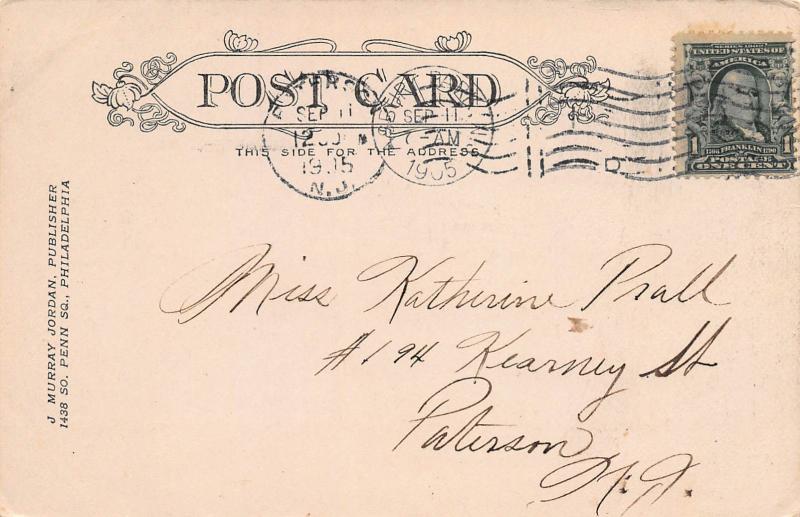 POST CARD
THIS SIDE FOR THE ADDRESS
SEP 11
1905
N.J.
SEP 11
-AM
1905
D
SERIES 1902
UNITED STATES OF
AMERICA
1 FRANKLIN 1
POSTAGE
ONE CENT
J MURRAY JORDAN, PUBLISHER
1438 SO. PENN SQ., PHILADELPHIA
Miss Katherine Prall
#194 Kearney St
Paterson
N.J.